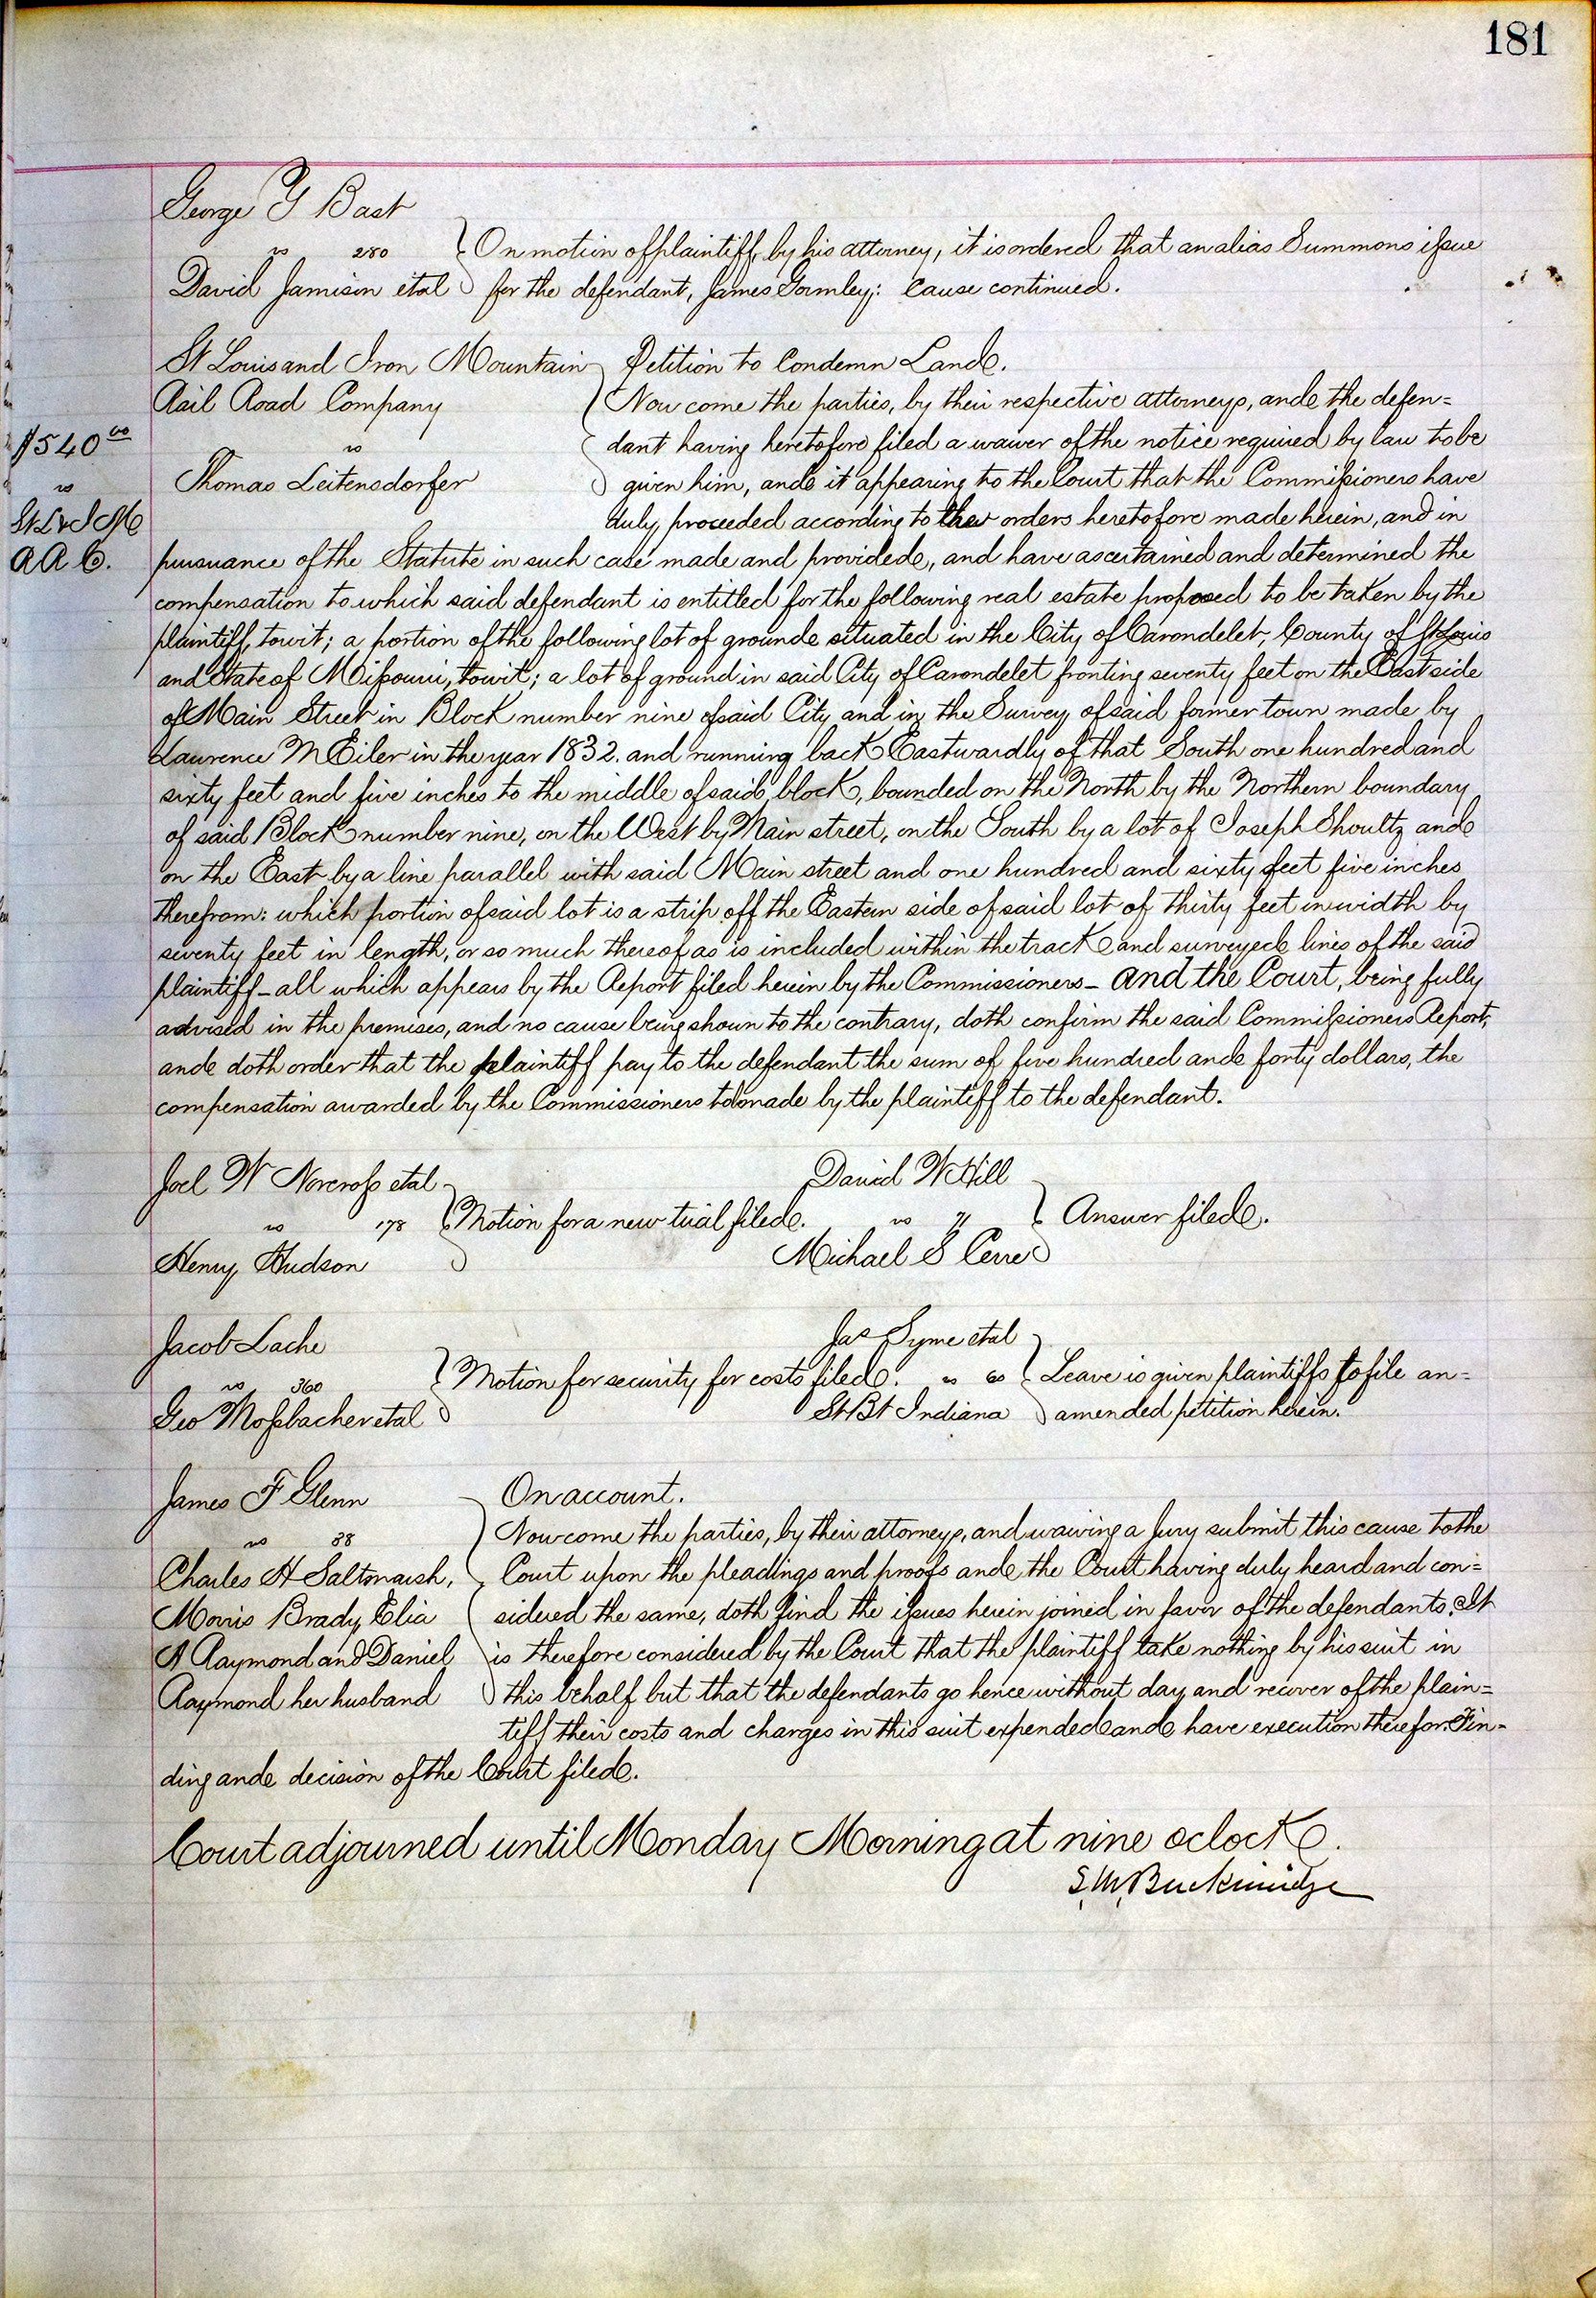 181
George Y Bast
vs 280
David Jamison et al
On motion of plaintiff, by his attorney, it is ordered that an alias Summons issue
for the defendant, James Gormley; Cause continued.
$540 00
vs
St L & I M
R R C.
St Louis and Iron Mountain
Rail Road Company
vs
Thomas Leitensdorfer
Petition to Condemn Land.
Now come the parties, by their respective attorneys, and the defen=
dant having heretofore filed a waiver of the notice required by law to be
given him, and it appearing to the Court that the Commissioners have
duly proceeded according to the orders heretofore made herein, and in
pursuance of the Statute in such case made and provided, and have ascertained and determined the
compensation to which said defendant is entitled for the following real estate proposed to be taken by the
plaintiff, towit; a portion of the following lot of ground situated in the City of Carondelet, County of St Louis
and State of Missouri, towit; a lot of ground in said City of Carondelet fronting seventy feet on the East side
of Main Street in Block number nine of said City and in the Survey of said former town made by
Laurence M Eiler in the year 1832. and running back Eastwardly of that South one hundred and
sixty feet and five inches to the middle of said block, bounded on the North by the Northern boundary
of said Block number nine, on the West by Main street, on the South by a lot of Joseph Shoultz and
on the East by a line parallel with said Main street and one hundred and sixty feet five inches
therefrom: which portion of said lot is a strip off the Eastern side of said lot of thirty feet in width by
seventy feet in length, or so much thereof as is included within the track and surveyed lines of the said
plaintiff – all which appears by the Report filed herein by the Commissioners – and the Court, being fully
advised in the premises, and no cause being shown to the contrary, doth confirm the said Commissioners Report,
and doth order that the plaintiff pay to the defendant the sum of five hundred and forty dollars, the
compensation awarded by the Commissioners to be made by the plaintiff to the defendant.
Joel W Norcross et al
vs 178
Henry Hudson
Motion for a new trial filed.
David W Hill
vs 71
Michael S Cerre
Answer filed.
Jacob Lache
vs 360
Geo Mossbacher et al
Motion for security for costs filed.
Jas Syme et al
vs 60
St Bt Indiana
Leave is given plaintiffs to file an=
amended petition herein.
James F Glenn
vs 38
Charles H Saltmarsh,
Morris Brady, Elia
A Raymond and Daniel
Raymond her husband
On account.
Now come the parties, by their attorneys, and waiving a Jury submit this cause to the
Court upon the pleadings and proofs and the Court having duly heard and con=
sidered the same, doth find the issues herein joined in favor of the defendants. It
is therefore considered by the Court that the plaintiff take nothing by his suit in
this behalf but that the defendants go hence without day and recover of the plain=
tiff their costs and charges in this suit expended and have execution therefor. Fin=
ding and decision of the Court filed.
Court adjourned until Monday Morning at nine oclock.
S. M. Breckinridge